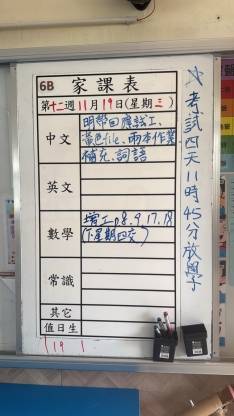 6B 家課表
第十二週11月19日(星期三)
中文
明帶回應試工、
黃色file、兩本作業
補充、詞語
英文
數學
增工p.8,9,17,18
(下星期四交)
常識
其它
值日生
19 1
考試四天11時45分放學